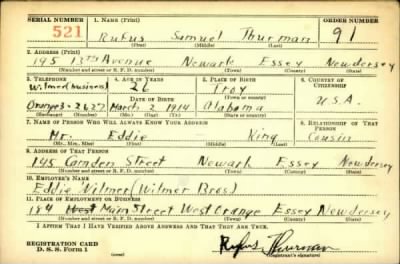 SERIAL NUMBER 1. NAME (Print) ORDER NUMBER
521 Rufus Samuel Thurman 91
(First) (Middle) (Last)
2. ADDRESS (Print)
195 13TH Avenue Newark Essex New Jersey
(Number and street or R. F. D. number) (Town) (County) (State)
3. TELEPHONE 4. AGE IN YEARS 5. PLACE OF BIRTH 6. COUNTRY OF CITIZENSHIP
Wilmer (business) 26 Troy
DATE OF BIRTH (Town or county)
Orange 3-2627 March 2 1914 Alabama U.S.A.
(Exchange) (Number) (Mo.) (Day) (Yr.) (State or country)
7. NAME OF PERSON WHO WILL ALWAYS KNOW YOUR ADDRESS 8. RELATIONSHIP OF THAT PERSON
Mr. Eddie King Cousin
(Mr., Mrs., Miss) (First) (Middle) (Last)
9. ADDRESS OF THAT PERSON
195 Camden Street Newark Essex New Jersey
(Number and street or R. F. D. number) (Town) (County) (State)
10. EMPLOYER'S NAME
Eddie Wilmer (Wilmer Bros)
11. PLACE OF EMPLOYMENT OR BUSINESS
184 West Main Street West Orange Essex New Jersey
(Number and street or R. F. D. number) (Town) (County) (State)
I AFFIRM THAT I HAVE VERIFIED ABOVE ANSWERS AND THAT THEY ARE TRUE.
REGISTRATION CARD Rufus Thurman
D. S. S. Form 1 (Registrant's signature)